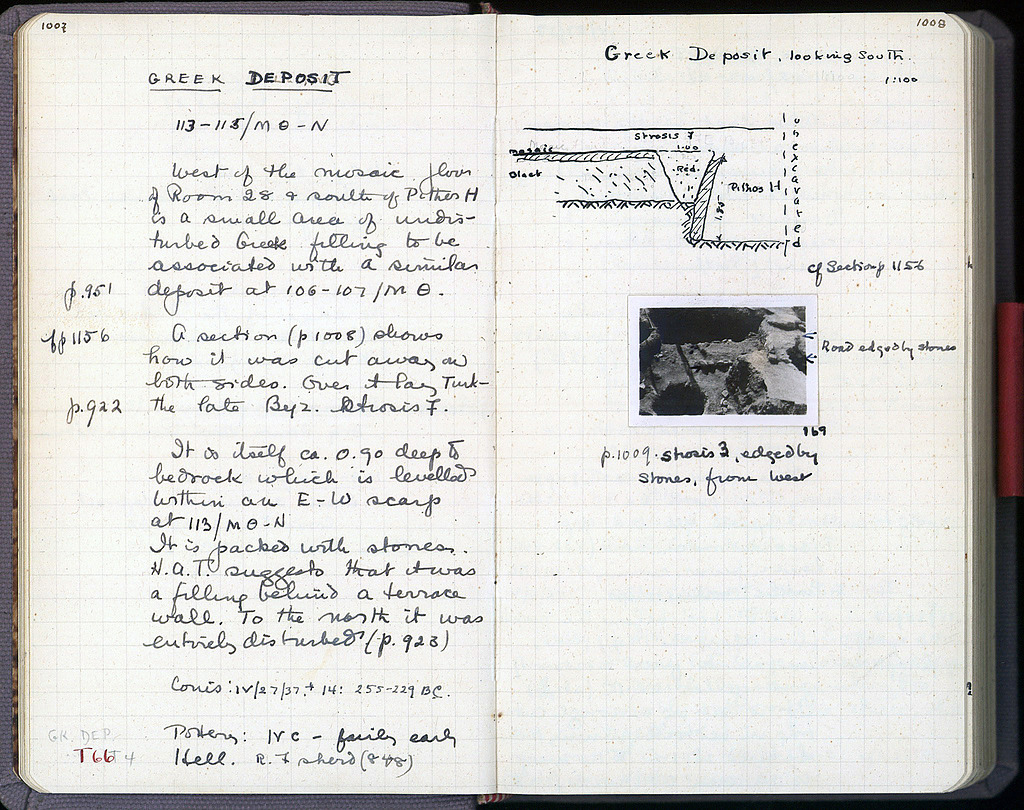 1007
GREEK DEPOSIT
113-115/ΜΘ-Ν
West of the mosaic floor
of Room 28 & south of Pithos H
is a small area of undis-
turbed Greek filling to be
associated with a similar
p.951 deposit at 106-107/ΜΘ.
cf p 1156 A section (p 1008) shows
how it was cut away on
both sides. Over it lay Turk-
p.922 the late Byz. Strosis 7.
It is itself ca. 0.90 deep to
bedrock which is levelled
within an E-W scarp
at 113/ΜΘ-Ν
It is packed with stones.
H.A.T. suggests that it was
a filling behind a terrace
wall. To the north it was
entirely disturbed (p. 923)
Coins: IV/27/37 + 14: 255-229 BC.
Pottery: IV c - fairly early
Hell. R.F sherd
GK. DEP.
T66
1008
Greek Deposit, looking South.
1:100
Strosis 7
mosaic
1.00
Red
Pithos H
1.85
unexcavated
cf Section p 1156
Road edged by stones
169
p.1009. Strosis 3, edged by
stones, from west